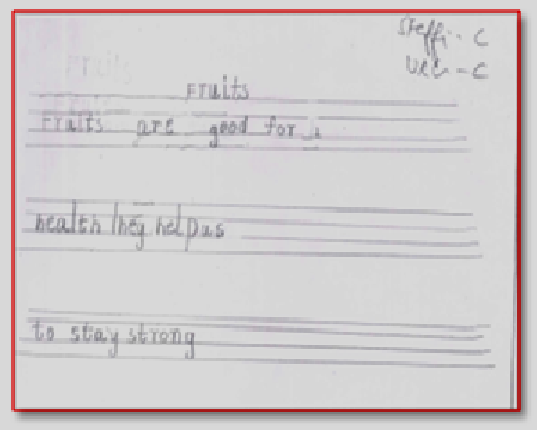 Steffi - C
UKG - C
Fruits
Fruits are good for
health they help us
to stay strong